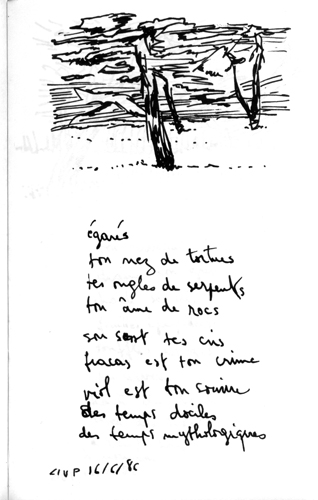 égarés
ton nez de tortues
tes ongles de serpents
ton âme de rocs
son sont tes cris
fracas est ton crime
viol est ton sourire
des temps dociles
des temps mythologiques
16/6/86